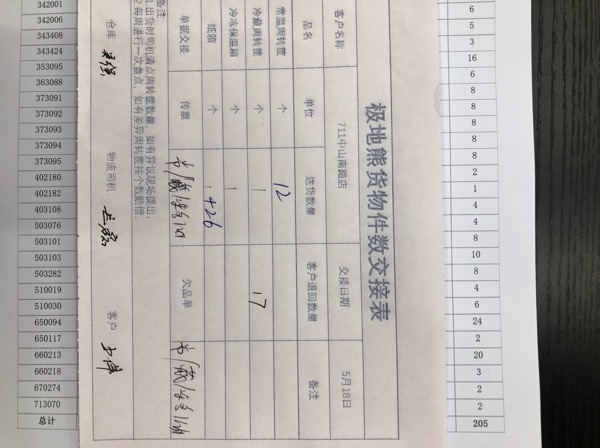 极地熊货物件数交接表
客户名称 711中山南路店 交接日期 5月18日
品名 单位 送货数量 客户退回数量 备注
常温周转筐 个 12
冷藏周转筐 个 17
冷冻保温箱 个
纸箱 个 +26
单据交接 传票 欠品单
备注
1.出货时司机清点周转筐数量,如有异议现场提出,
2.每周进行一次盘点,如有差异周转筐按个数赔偿.
仓库 物流司机 客户
342001 6
342006 5
343408 3
343424 16
353095 6
363088 8
373091 8
373092 8
373093 8
373094 8
373095 8
402180 2
402182 1
403108 4
503076 4
503101 8
503103 10
503282 8
510019 4
510030 6
650094 24
650117 2
660213 20
660218 3
670274 2
713070 2
总计 205